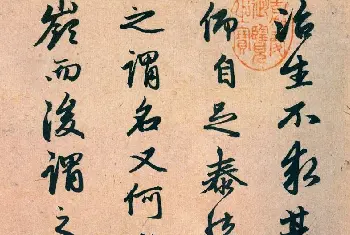 治生不求其
仰自足泰然
之謂名又何
嶺而後謂之